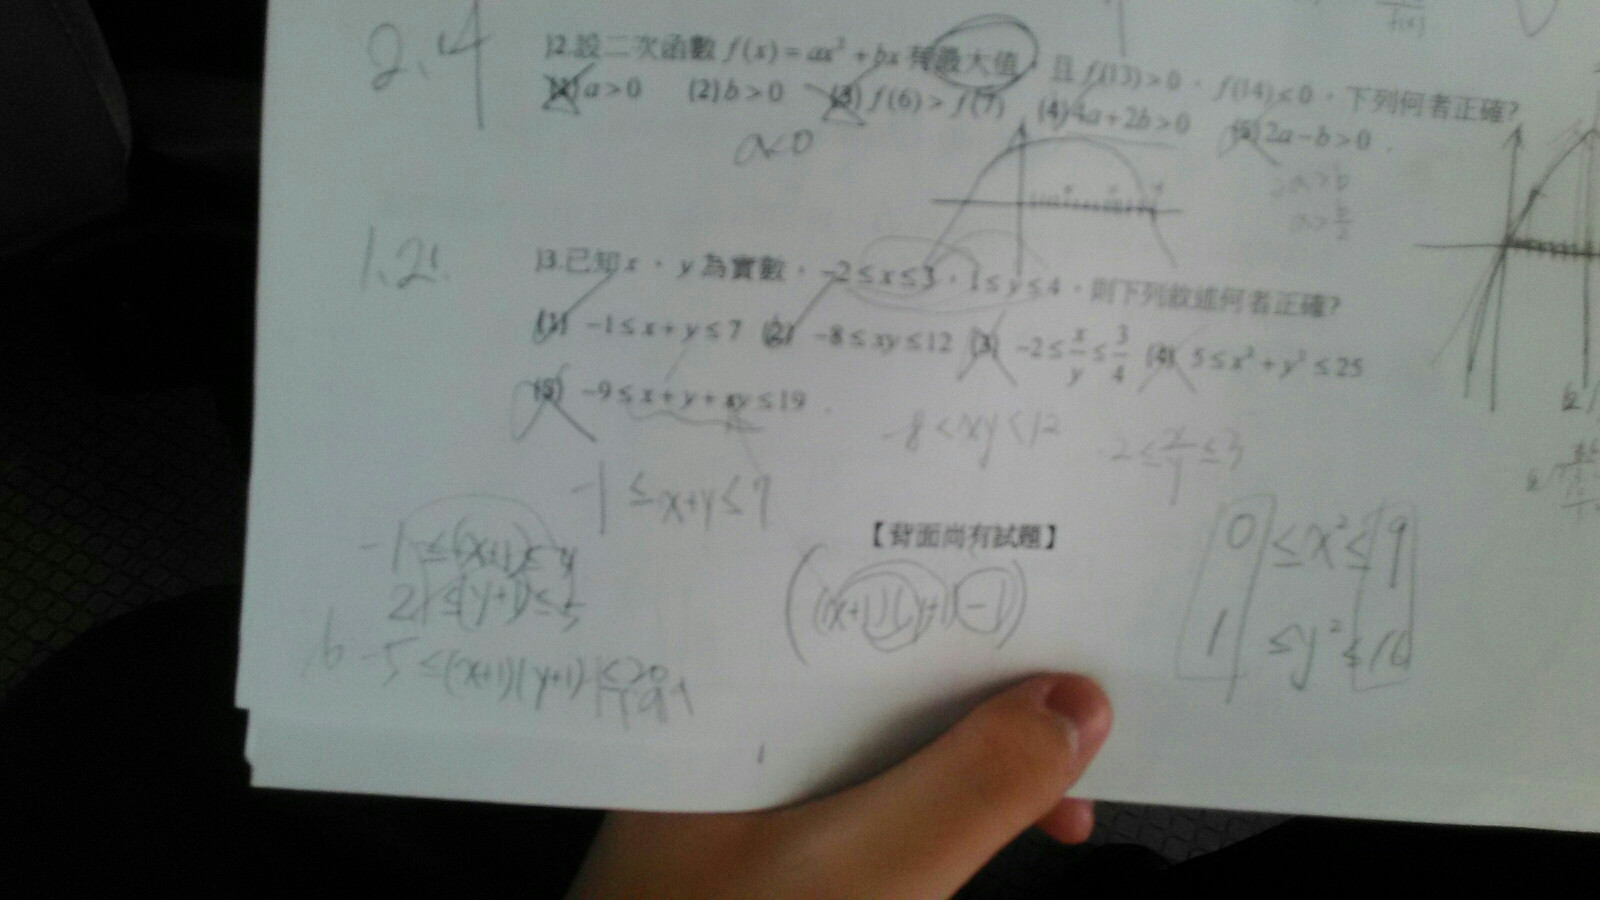 2.4
12.設二次函數 f(x)=ax²+bx 有最大值,且 f(13)>0,f(14)<0,下列何者正確?
(1) a>0 (2) b>0 (3) f(6)>f(7) (4) 4a+2b>0 (5) 2a-b>0.
a<0
2a>b
a>b/2
1.2.
13.已知 x,y 為實數,-2≤x≤3,1≤y≤4,則下列敘述何者正確?
(1) -1≤x+y≤7 (2) -8≤xy≤12 (3) -2≤x/y≤3/4 (4) 5≤x²+y²≤25
(5) -9≤x+y+xy≤19.
-8<xy<12
-2≤x/y≤3
-1≤x+y≤7
【背面尚有試題】
-1≤(x+1)≤4
2≤(y+1)≤5
((x+1)(y+1)-1)
0≤x²≤9
1≤y²≤16
-5≤(x+1)(y+1)≤20
1
f(x)